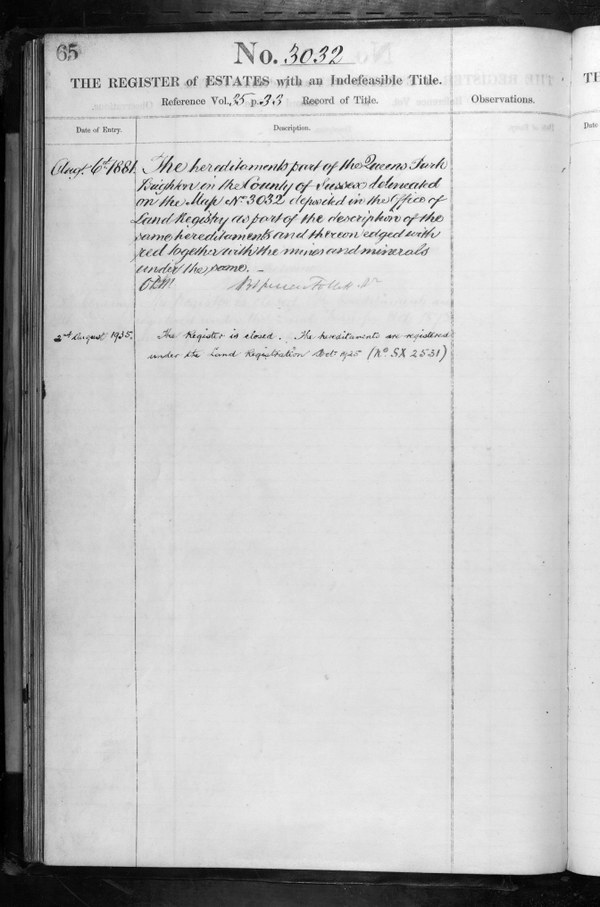 65
No. 3032
THE REGISTER of ESTATES with an Indefeasible Title.
Reference Vol. 25 p. 33 Record of Title.
Observations.
Date of Entry.
Description.
Augt. 6th 1881.
The hereditaments part of the Queens Park
Brighton in the County of Sussex delineated
on the Map No 3032 deposited in the Office of
Land Registry as part of the description of the
same hereditaments and thereon edged with
red together with the mines and minerals
under the same. –
Follett
2nd August 1935.
The Register is closed. The hereditaments are registered
under the Land Registration Act 1925 (No. SX 2531)
TH
Da